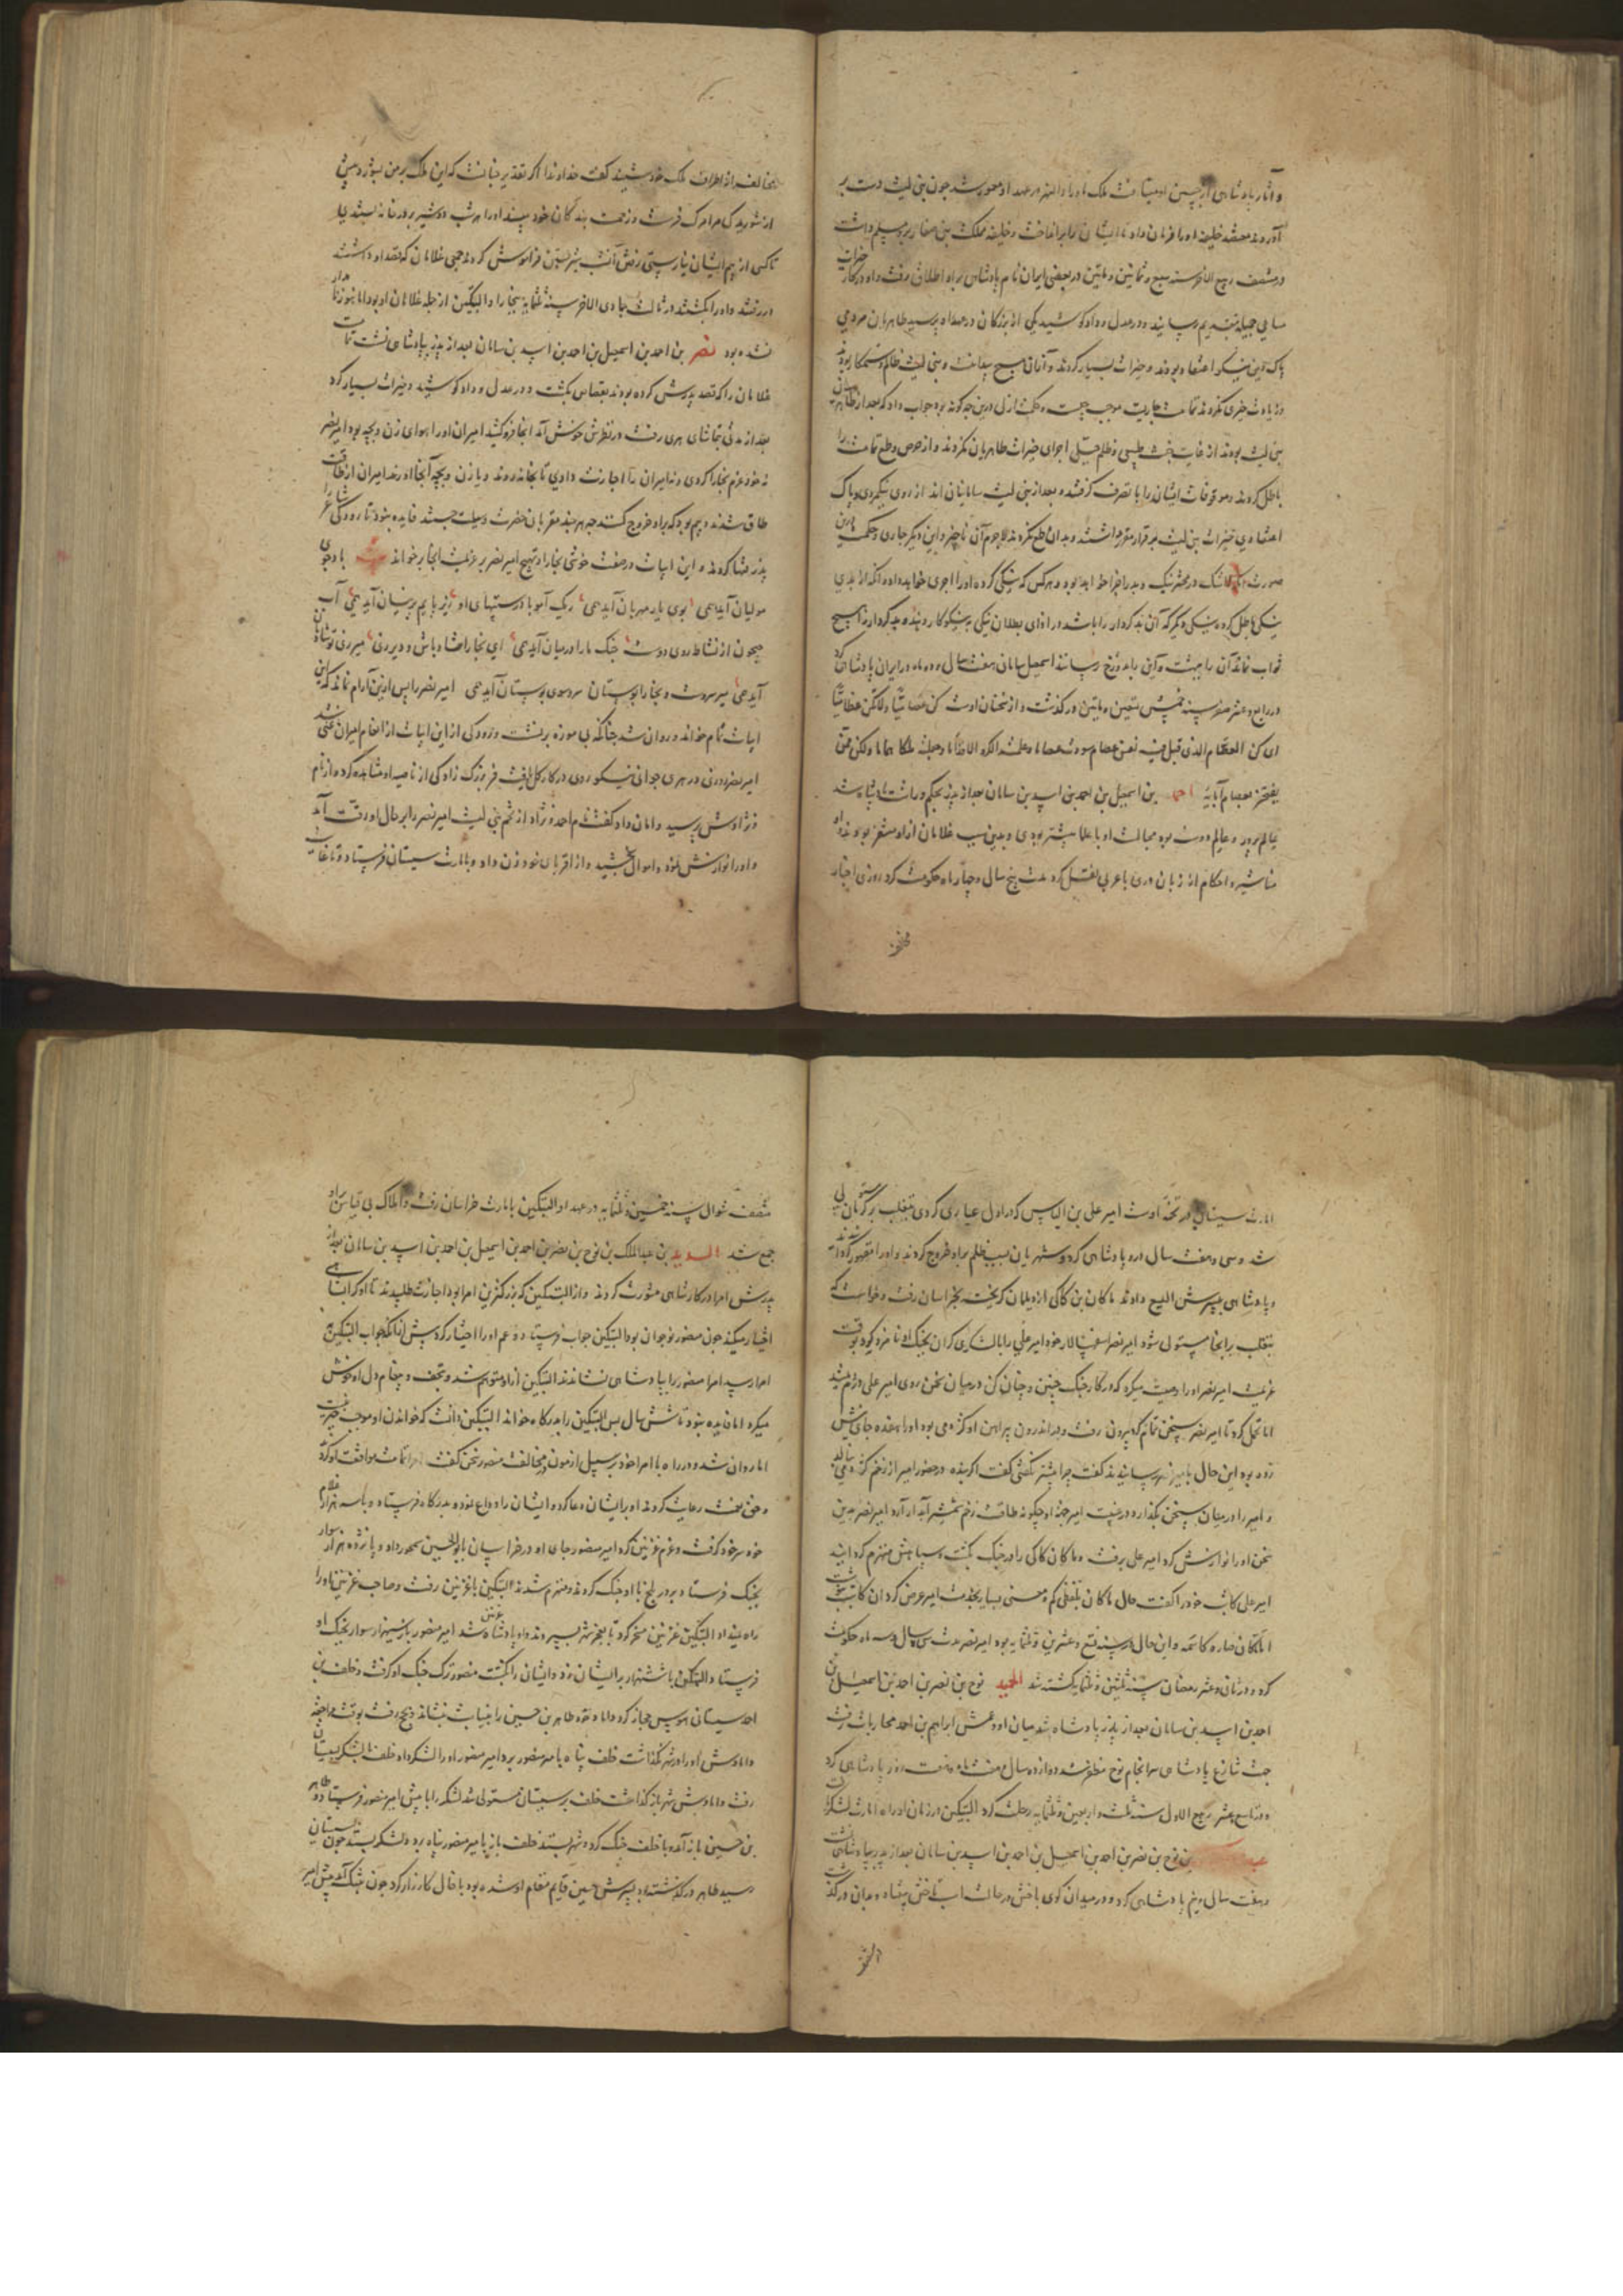 و آثار پادشاهی از جبین او میتافت ملک ماوراء النهر در عهد او معمور شد چون بنی لیث دست بر
آوردند معتضد خلیفه او را فرمان داد تا ایشان را برانداخت و خلیفه مملکت بنی صفار برو مسلم داشت
در منتصف ربیع الاخر سنه سبع و ثمانین و ماتین در بعضی ایران نام پادشاهی برو اطلاق رفت و او در کار خیرات
مساعی جمیله بتقدیم رسانید و در عدل و داد کوشید یکی از بزرگان در عهد او پرسید طاهریان مردمی
پاک دین نیکو اعتقاد بودند و خیرات بسیار کردند و از آن هیچ نماند و بنی لیث ظالم و ستمکار بودند
و زیادت خیری نکردند تمامت جاریست موجب چیست و حکمت ازلی درین چه گونه بود جواب داد که بعد از طاهریان
بنی لیث بودند از غایت خبث طبیعی و ظلم جبلی اجرای خیرات طاهریان نکردند و از حرص و طمع تمامت را
باطل کردند و موقوفات ایشان را با تصرف گرفتند و بعد از بنی لیث سامانیان اند از روی نیکمردی و پاک
اعتقادی خیرات بنی لیث بر قرار مقرر داشتند و بدان طمع نکردند لاجرم آن ناچیز و این دیگر جاری و حکمت درین
صورت آنکه تا شک در محشر نیک و بد را فراخور ابد بود و هر کس که نیکی کرده او را اجری خواهد داد و آنکه از بدی
نیکی باطل کرده و نیکی دیگر که آن بد کردار را باشد در ازای بطلان نیکی به نیکوکار دهند و بد کردار را هیچ
ثواب نماند آن را بهشت و این را بدوزخ رسانند اسمعیل سامان هفت سال و ده ماه در ایران پادشاهی کرد
در رابع عشر صفر سنه خمس و تسعین و ماتین درگذشت و از سخنان اوست کن عصامیا و لا تکن عظامیا
ای کن العصام الذی قیل فیه نفس عصام سودت عصاما و علمته الکر و الاقداما و جعلته ملکا هماما و لا تکن ممن
یفتخر بعظام آبایه احمد بن اسمعیل بن احمد بن اسد بن سامان بعد از پدر بحکم وراثت پادشاه شد
عالم پرور و عالم دوست بود مجالست او با علما بیشتر بودی و بدین سبب غلامان از او متنفر بودند و او
مناشیر و احکام از زبان دری با عربی نقل کرد مدت پنج سال و چهار ماه حکومت کرد روزی اخبار
مخالف
مخالف از اطراف ملک خود شنید گفت خداوندا اگر تقدیر چنانست که این ملک بر من بشورد پیش
از شوریدگی مرا مرگ فرست و زحمت بندگان خود مپسند او را هر شب دو شیر بر در خانه بستندی
تا کسی از بیم ایشان نیارستی رفتن آن شب شیر بستن فراموش کردند جمعی غلامان که قصد او داشتند
در رفتند و او را بکشتند در ثالث جمادی الاخر سنه ثلثمایه ببخارا و البتکین از جمله غلامان او بود اما هنوز نامدار
نشده بود نصر بن احمد بن اسمعیل بن احمد بن اسد بن سامان بعد از پدر بپادشاهی نشست تمامت
غلامان را که قصد پدرش کرده بودند بقصاص بکشت و در عدل و داد کوشید و خیرات بسیار کرد
بعد از مدتی بتماشای هری رفت در نظرش خوش آمد آنجا فروکشید امیران او را هوای زن و بچه بود امیر نصر
نه خود عزم بخارا کردی و نه امیران را اجازت دادی تا بخانه روند و یا زن و بچه آنجا آورند امیران از طاقت
طاق شدند و بیم بود که برو خروج کنند چه هر چند مقربان حضرت وسیلت جستند فایده نبود تا رودکی شاعر را
پذیرفتها کردند و این ابیات در صفت خوشی بخارا و تهییج امیر نصر بر عزیمت آنجا بر خواند بیت باد جوی
مولیان آید همی بوی یار مهربان آید همی ریگ آمو با درشتیهای او زیر پایم پرنیان آید همی آب
جیحون از نشاط روی دوست خنگ ما را در میان آید همی ای بخارا شاد باش و دیر زی میر زی تو شادمان
آید همی میر سروست و بخارا بوستان سرو سوی بوستان آید همی امیر نصر را پس ازین آرام نماند که این
ابیات تمام خواند و روان شد چنانکه بی موزه برنشست و رودکی از این ابیات از انعام امیران غنی شد
امیر نصر روزی در هری جوانی نیکو روی در کار گل یافت فر بزرگ زادگی از ناصیه او مشاهده کرد و از نام
و نژادش پرسید و امان داد گفت نام احمد و نژاد از تخم بنی لیث امیر نصر را بر حال او رقت آمد
و او را نوازش نمود و اموال بخشید و از اقربای خود زن داد و بامارت سیستان فرستاد و تا غایت
امارت سیستان در تخمه اوست امیر علی بن الیاس که در اول عیاری کردی بتغلب بر کرمان مستولی
شد و سی و هفت سال درو پادشاهی کرد و شهریان بسبب ظلم برو خروج کردند و او را مقهور گردانیدند
و پادشاهی بپسرش الیسع دادند ماکان بن کاکی از دیلمان گریخت بخراسان رفت و خواست که
بتغلب بر آنجا مستولی شود امیر نصر اسفهسالار خود امیر علی را با لشکری گران بجنگ او نامزد کرد بوقت
عزیمت امیر نصر او را وصیت میکرد که در کار جنگ چنین و چنان کن در میان سخن روی امیر علی درهم میشد
اما تحمل کرد تا امیر نصر سخن تمام کرد بیرون رفت و در اندرون پیراهن او کژدمی بود او را هفده جای نیش
زده بود این حال بامیر نصر رسانیدند گفت چرا پیشتر نگفتی گفت اگر بنده در حضور امیر از زخم کژدمی بنالد
و امیر را در میان سخن بگذارد در غیبت امیر چگونه طاقت زخم شمشیر آبدار آرد امیر نصر بدین
سخن او را نوازش کرد امیر علی برفت و ماکان کاکی را در جنگ بکشت و سپاهش منهزم گردانید
امیر علی کاتب خود را گفت حال ماکان بلفظی کم و معنی بسیار بخدمت امیر عرضه کرد آن کاتب نوشت
اما ماکان صار کاسمه و این حال در سنه تسع و عشرین و ثلثمایه بود امیر نصر مدت سی سال و سه ماه حکومت
کرد و در ثانی عشر رمضان سنه ثلثین و ثلثمایه کشته شد الحمید نوح بن نصر بن احمد بن اسمعیل بن
احمد بن اسد بن سامان بعد از پدر پادشاه شد میان او و عمش ابراهیم بن احمد محاربات رفت
جهت تنازع پادشاهی سرانجام نوح مظفر شد دوازده سال و هفت ماه و هفت روز پادشاهی کرد
و در تاسع عشر ربیع الاول سنه ثلث و اربعین و ثلثمایه رحلت کرد البتکین در زمان او راه امارت لشکر یافت
بن نوح بن نصر بن احمد بن اسمعیل بن احمد بن اسد بن سامان بعد از پدر بپادشاهی نشست
و هفت سال و نیم پادشاهی کرد و در میدان گوی باختن در حالت اسب تاختن بیفتاد و بدان درگذشت
منتصف شوال سنه خمسین و ثلثمایه در عهد او البتکین بامارت خراسان رفت و املاک بی قیاس او را
جمع شد السدید بن عبد الملک بن نوح بن نصر بن احمد بن اسمعیل بن احمد بن اسد بن سامان بعد از
پدرش امرا در کار شاهی مشورت کردند و از البتکین که بزرگترین امرا بود اجازت طلبیدند تا او کرا بشاهی
اختیار میکند چون منصور نوجوان بود البتکین جواب فرستاد و عم او را اختیار کرد پیش از آنکه جواب البتکین به
امرا رسید امرا منصور را بپادشاهی نشاندند البتکین از او متوهم شد و بتحف و پیغام دل او خوش
میکرد اما فایده نبود تا شش سال پس البتکین را بدرگاه خواند البتکین دانست که خواندن او موجب خیر نیست
اما روان شد و در راه با امرا خود بر سبیل آزمون در مخالفت منصور سخن گفت امرا تمامت موافقت او کردند
و حق نعمت رعایت کردند او برایشان دعا کرد و ایشان را وداع نمود و بدرگاه فرستاد و با سه هزار غلام
خود سر خود گرفت و عزم غزنین کرد امیر منصور جای او در خراسان بابو الحسین سیمجور داد و پانزده هزار سوار
بجنگ فرستاد و بر در بلخ با او جنگ کردند و منهزم شدند البتکین با غزنین رفت و صاحب غزنین او را
راه نمیداد البتکین غزنین مسخر کرد تا بعجز شهر بسپردند و او پادشاه غزنین شد امیر منصور باز سی هزار سوار بجنگ او
فرستاد البتکین با شش هزار بر ایشان زد و ایشان را بکشت منصور ترک جنگ او گرفت و خلف بن
احمد سیستانی هوس حجاز کرد و داماد خود طاهر بن حسین را بنیابت بنشاند و بحج رفت بوقت مراجعت
دامادش او را در شهر نگذاشت خلف پناه با میر منصور برد امیر منصور او را لشکر داد خلف با لشکر بسیستان
رفت دامادش شهر باز گذاشت خلف بر سیستان مستولی شد لشکر را با پیش امیر منصور فرستاد طاهر
بن حسین باز آمد و با خلف جنگ کرد و شهر بستد خلف باز بامیر منصور پناه برد و لشکر بستد چون بسیستان
رسید طاهر در گذشته بود پسرش حسین قایم مقام او شده بود با خال کارزار کرد چون بتنگ آمد پیش امیر